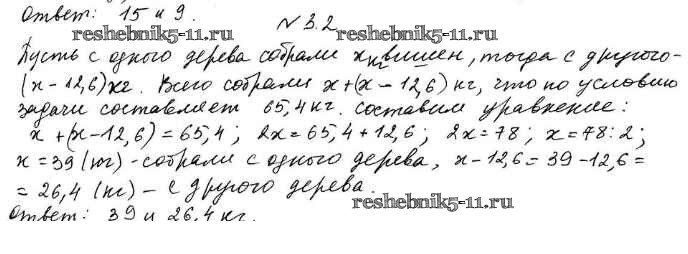 Ответ: 15 и 9.
№3.2
reshebnik5-11.ru reshebnik5-11.ru
Пусть с одного дерева собрали x кг вишен, тогда с другого-
(x-12,6)кг. Всего собрали x+(x-12,6) кг, что по условию
задачи составляет 65,4 кг. составим уравнение:
x+(x-12,6)=65,4; 2x=65,4+12,6; 2x=78; x=78:2;
x=39 (кг)-собрали с одного дерева, x-12,6=39-12,6=
=26,4 (кг)- с другого дерева.
reshebnik5-11.ru reshebnik5-11.ru
Ответ: 39 и 26,4 кг.